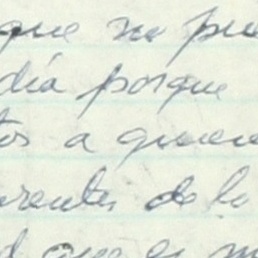 que no pue
dia porque
tos a quiene
rentes de la
que es m